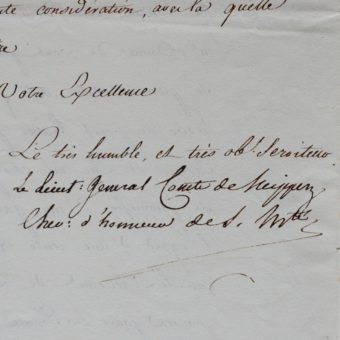 te considération, avec la quelle
re
Votre Excellence
Le très humble, et très obt. Serviteur
Le Lieut: General Comte de Neipperg
Chev: d'honneur de S. Mté